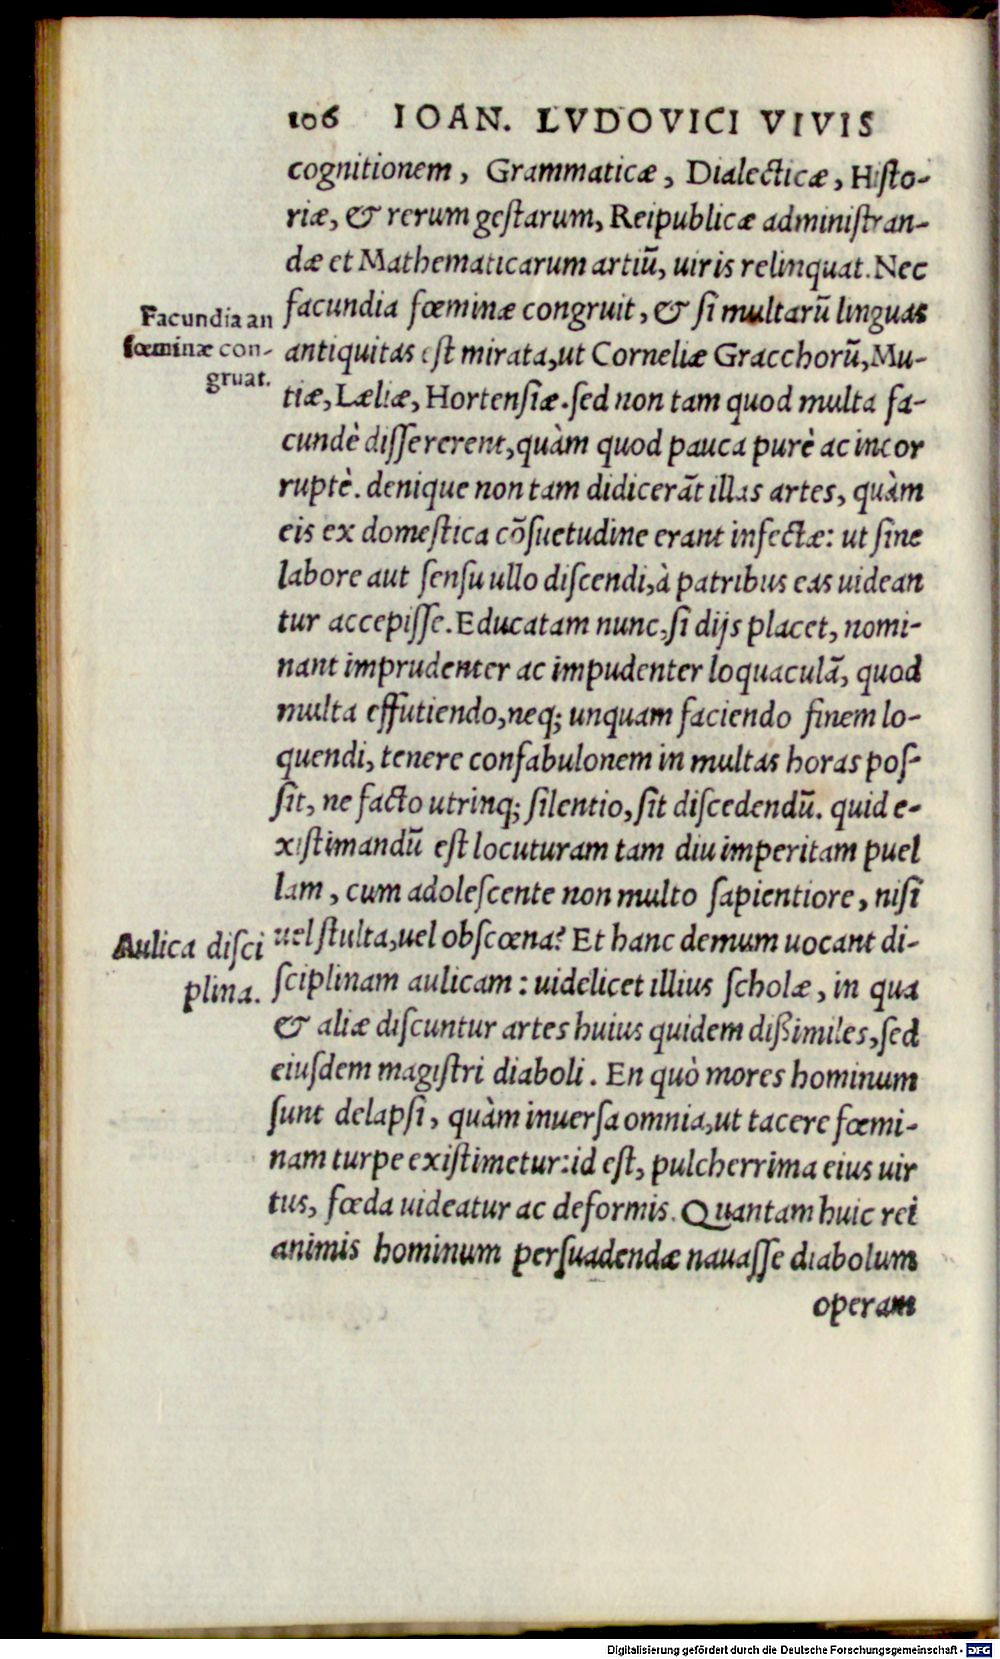 106 IOAN. LVDOVICI VIVIS
cognitionem, Grammaticæ, Dialecticæ, Histo-
riæ, & rerum gestarum, Reipublicæ administran-
dæ et Mathematicarum artiũ, uiris relinquat. Nec
facundia fœminæ congruit, & si multarũ linguas
antiquitas est mirata, ut Corneliæ Gracchorũ, Mu-
tiæ, Læliæ, Hortensiæ. sed non tam quod multa fa-
cundè dissererent, quàm quod pauca purè ac incor
ruptè. denique non tam didicerãt illas artes, quàm
eis ex domestica cõsuetudine erant infectæ: ut sine
labore aut sensu ullo discendi, à patribus eas uidean
tur accepisse. Educatam nunc, si dijs placet, nomi-
nant imprudenter ac impudenter loquaculã, quod
multa effutiendo, neq; unquam faciendo finem lo-
quendi, tenere confabulonem in multas horas pos-
sit, ne facto utrinq; silentio, sit discedendũ. quid e-
xistimandũ est locuturam tam diu imperitam puel
lam, cum adolescente non multo sapientiore, nisi
uel stulta, uel obscœna? Et hanc demum uocant di-
sciplinam aulicam: uidelicet illius scholæ, in qua
& aliæ discuntur artes huius quidem dißimiles, sed
eiusdem magistri diaboli. En quò mores hominum
sunt delapsi, quàm inuersa omnia, ut tacere fœmi-
nam turpe existimetur: id est, pulcherrima eius uir
tus, fœda uideatur ac deformis. Quantam huic rei
animis hominum persuadendæ nauasse diabolum
operam
Facundia an
fœminæ con-
gruat.
Aulica disci
plina.
Digitalisierung gefördert durch die Deutsche Forschungsgemeinschaft - DFG